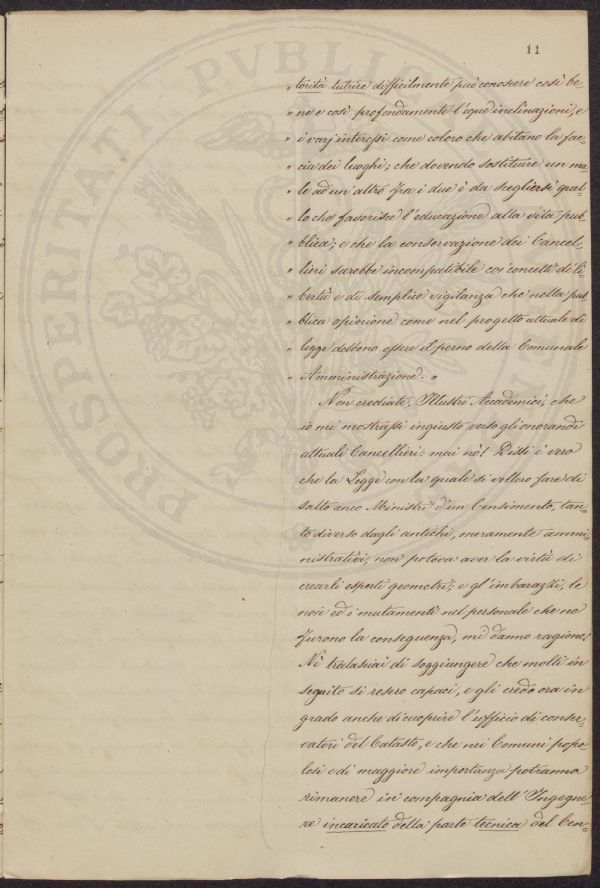 11
" torità tutrice difficilmente può conoscere così be-
" ne e così profondamente l'eque inclinazioni, e
" i varj interessi come coloro che abitano la fac-
" cia dei luoghi; che dovendo sostituire un ma-
" le ad un'altro fra i due è da scegliersi quel-
" lo che favorisce l'educazione alla vita pub-
" blica; e che la conservazione dei Cancel-
" lieri sarebbe incompatibile coi concetti di li-
" bertà e di semplice vigilanza che nella pub
" blica opinione come nel progetto attuale di
" legge debbono essere il perno della Comunale
" Amministrazione. "
Non crediate, Illustri Accademici, che
io mi mostrassi ingiusto verso gli onorandi
attuali Cancellieri: mai nò! Dissi è vero
che la Legge con la quale si vollero fare di
salto anco Ministri d'un Censimento, tan-
to diverso dagli antichi, meramente ammi-
nistrativi, non poteva aver la virtù di
crearli esperti geometri; e gl'imbarazzi, le
noie ed i mutamenti nel personale che ne
furono la conseguenza, mi danno ragione.
Nè tralasciai di soggiungere che molti in
seguito si resero capaci, e gli credo ora in
grado anche di cuoprire l'uffizio di conser-
vatori del Catasto, e che nei Comuni popo-
losi e di maggiore importanza potranno
rimanere in compagnia dell'Ingegne-
re incaricato della parte tecnica del Cen-
PROSPERITATI PVBLICAE